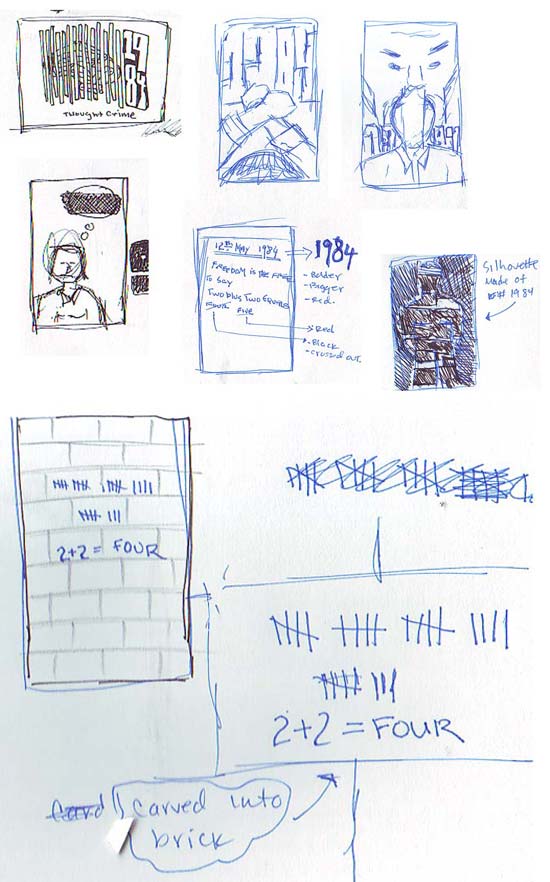 1984
Thought Crime
12th May 1984
1984
- Bolder
- Bigger
- Red.
Freedom is the free
is say
Two plus Two equals
Four Five
- Red
- Black
- crossed out.
Silhouette
Made of
1984
2+2 = FOUR
2+2 = FOUR
carved into
brick